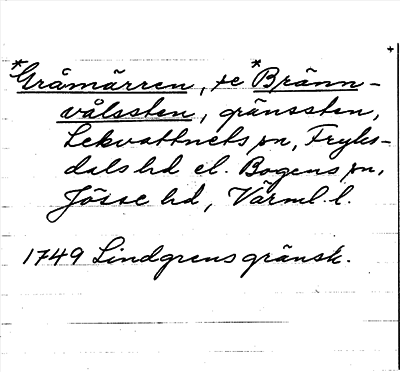 *Gråmärren, se *Bränn-
vålssten, gränssten,
Lekvattnets sn, Fryks-
dals hd el. Bogens sn,
Jösse hd, Värml. l.
1749 Lindgrens gränsk.